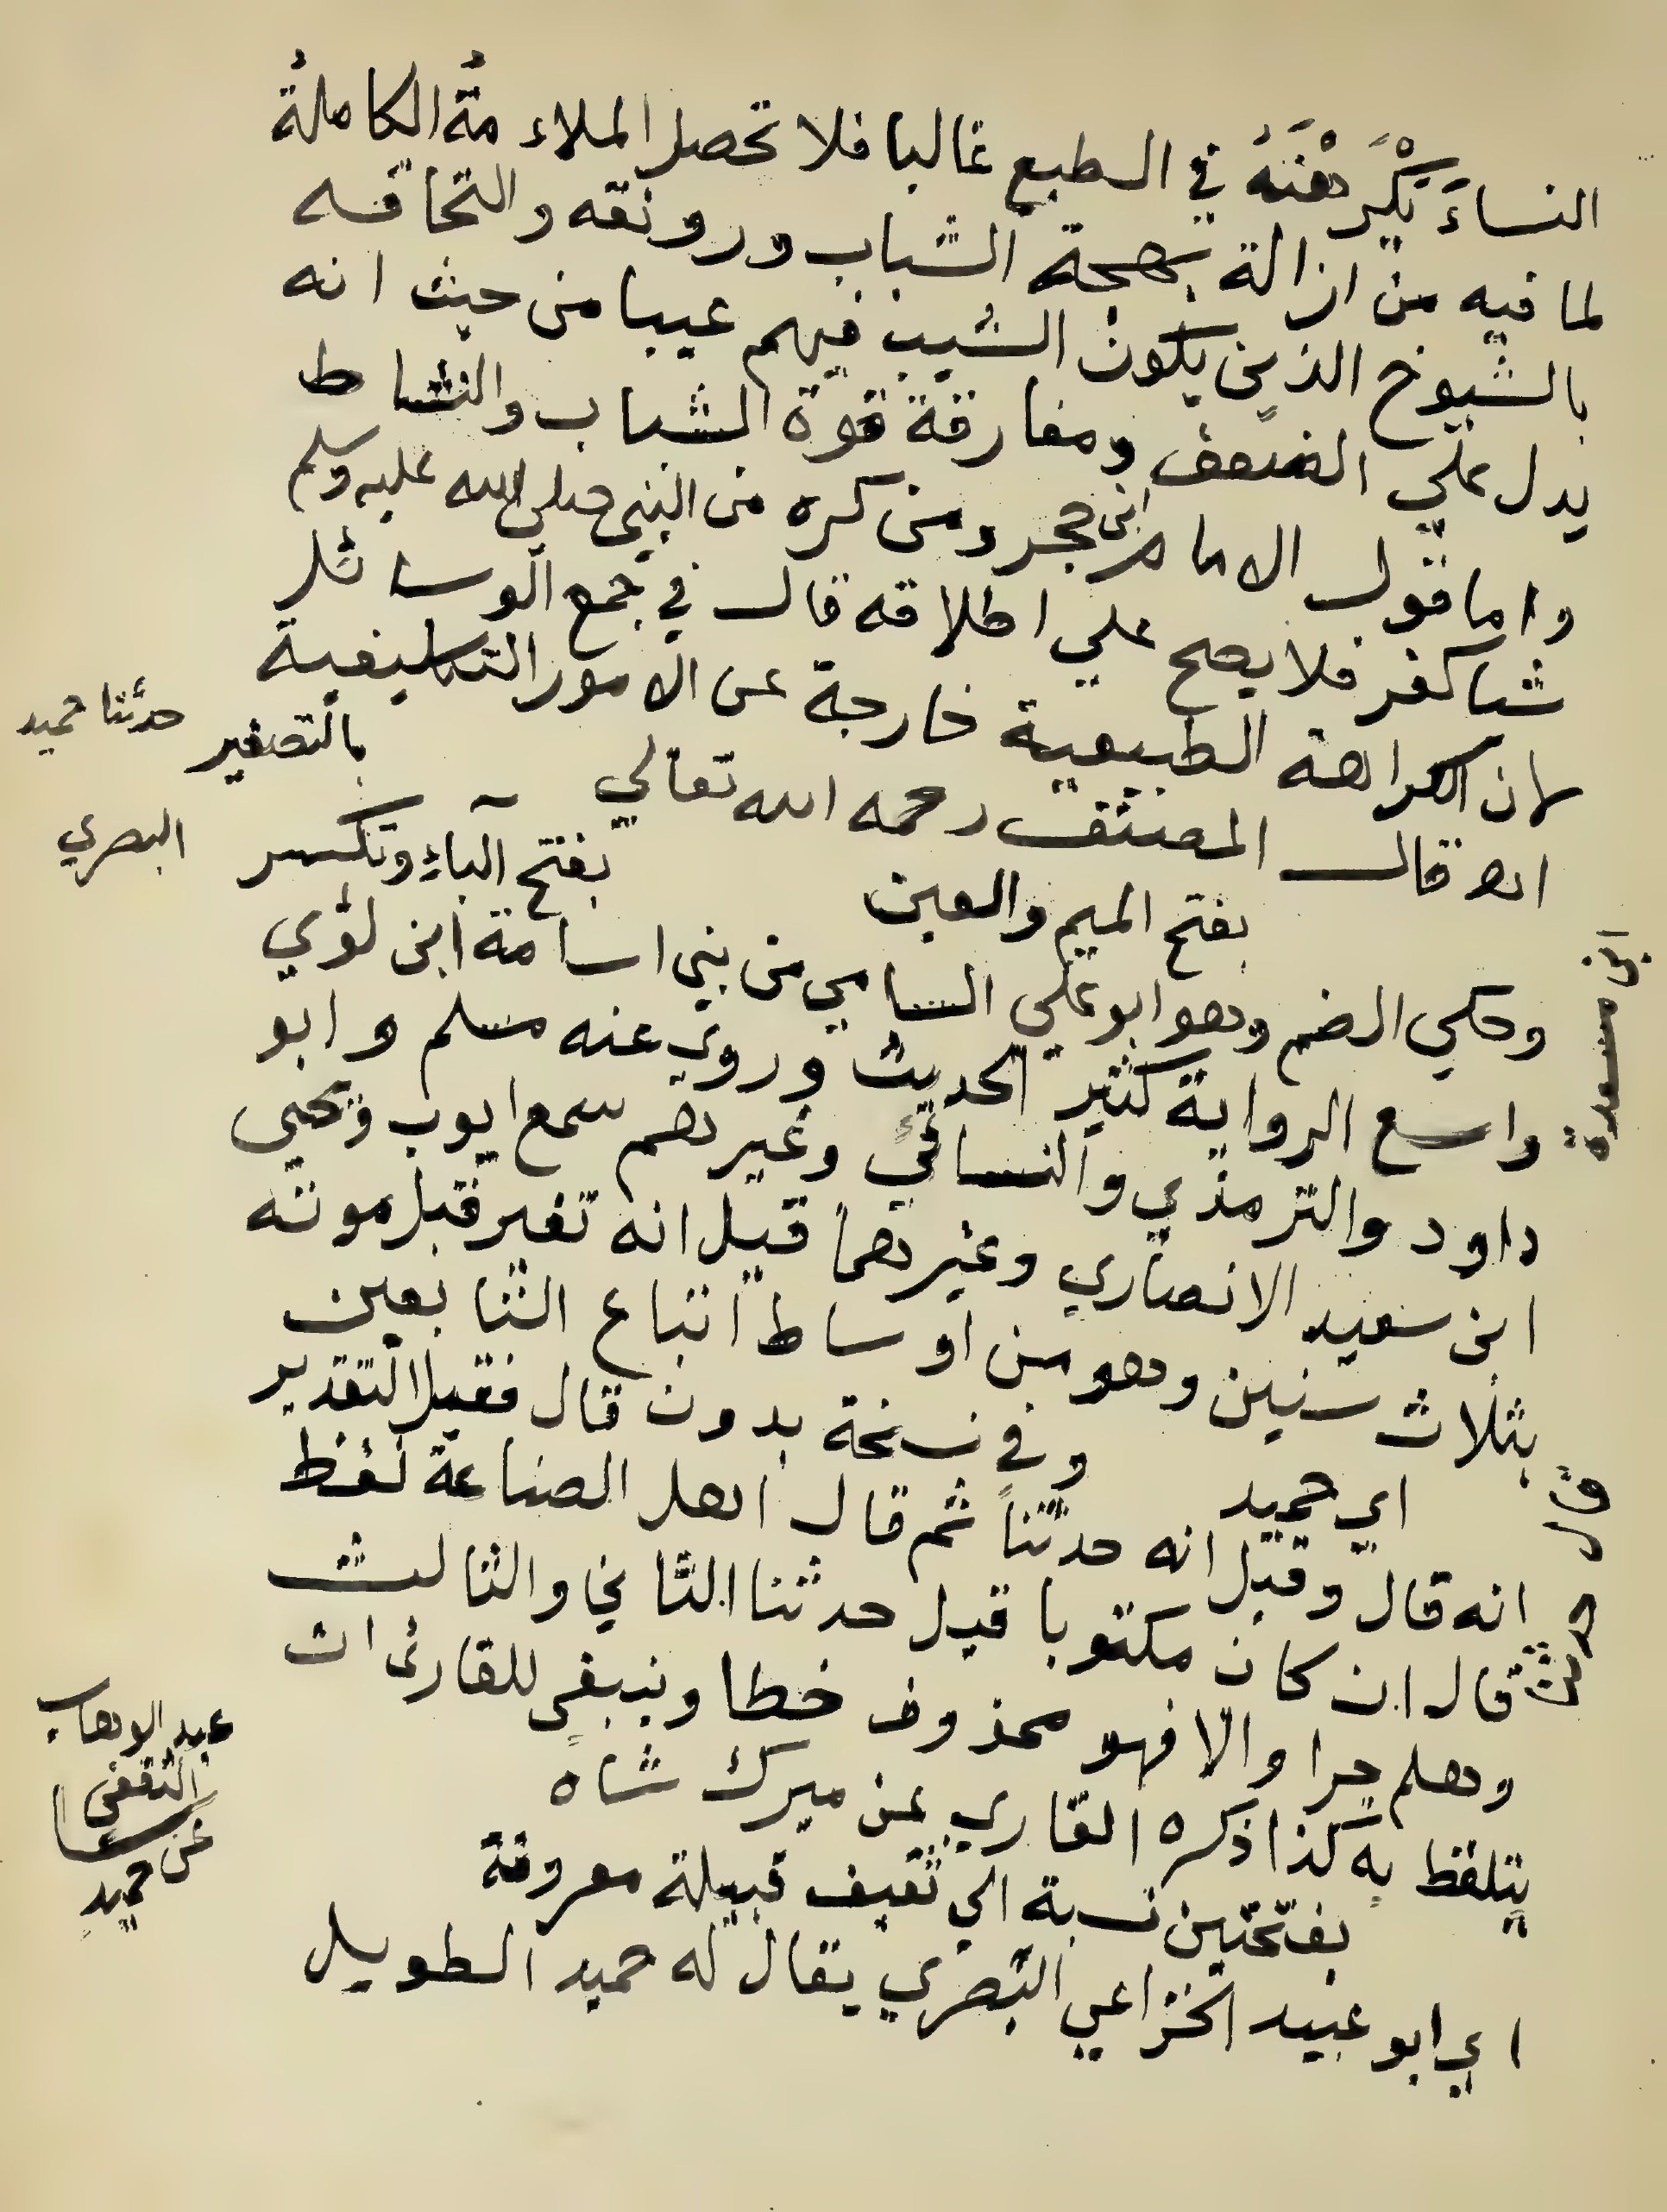 النساءَ يَكْرَهْنَهُ في الطبع غالبا فلا تحصل الملاءمةُ الكاملةُ
لما فيه من ازالة بهجة الشباب ورونقه والتحاقه
بالشيوخ الذين يكون الشيب فيهم عيبا من حيث انه
يدل علي الضعف ومفارقة قوة الشباب والنشاط
واما قول الامام ابن حجر ومن كره من النبي صلي الله عليه وسلم
شيا كفر فلا يصح علي اطلاقه قال في جمع الوسائل
لان الكراهة الطبيعية خارجة عن الامور التكليفية
اهـ قال المصنف رحمه الله تعالي
حدثنا حميد
بالتصغير
ابن مسعدة
بفتح الميم والعين
البصري
بفتح الباء وتكسر
وحكي الضم وهو ابو علي السامي من بني اسامة ابن لؤي
واسع الرواية كثير الحديث وروي عنه مسلم وابو
داود والترمذي والنسائي وغيرهم سمع ايوب ويحيى
ابن سعيد الانصاري وغيرهما قيل انه تغير قبل موته
بثلاث سنين وهو من اوساط اتباع التابعين
قال
اي حميد
حدثنا
وفي نسخة بدون قال فقيل التقدير
انه قال وقيل انه حدثنا ثم قال اهل الصناعة لفظ
قال ان كان مكتوبا قيل حدثنا الثاني والثالث
وهلم جرا والا فهو محذوف خطا وينبغي للقارئ ان
يتلفظ به كذا ذكره القاري عن ميرك شاه
عبد الوهاب
الثقفي
بفتحتين نسبة الي ثقيف قبيلة معروفة
عن حميد
اي ابو عبيد الخزاعي البصري يقال له حميد الطويل